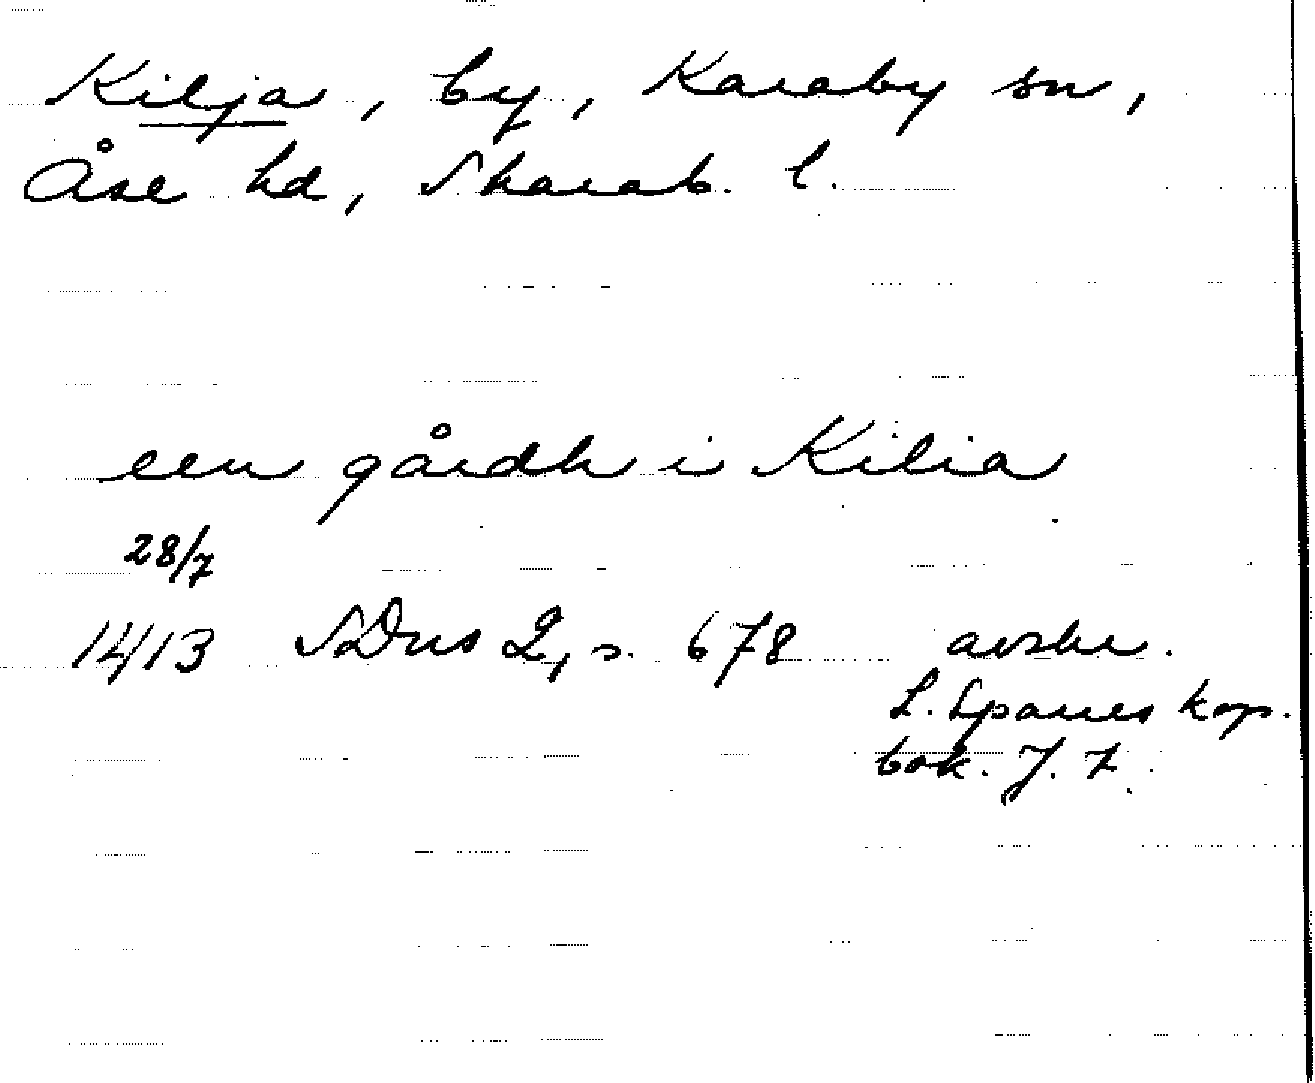 Kilja, by, Karaby sn,
Åse hd, Skarab. l.
een gårdh i Kilia
28/7
1413 SDns 2, s. 678 avskr.
L. Sparres kop.
bok. J. 7.